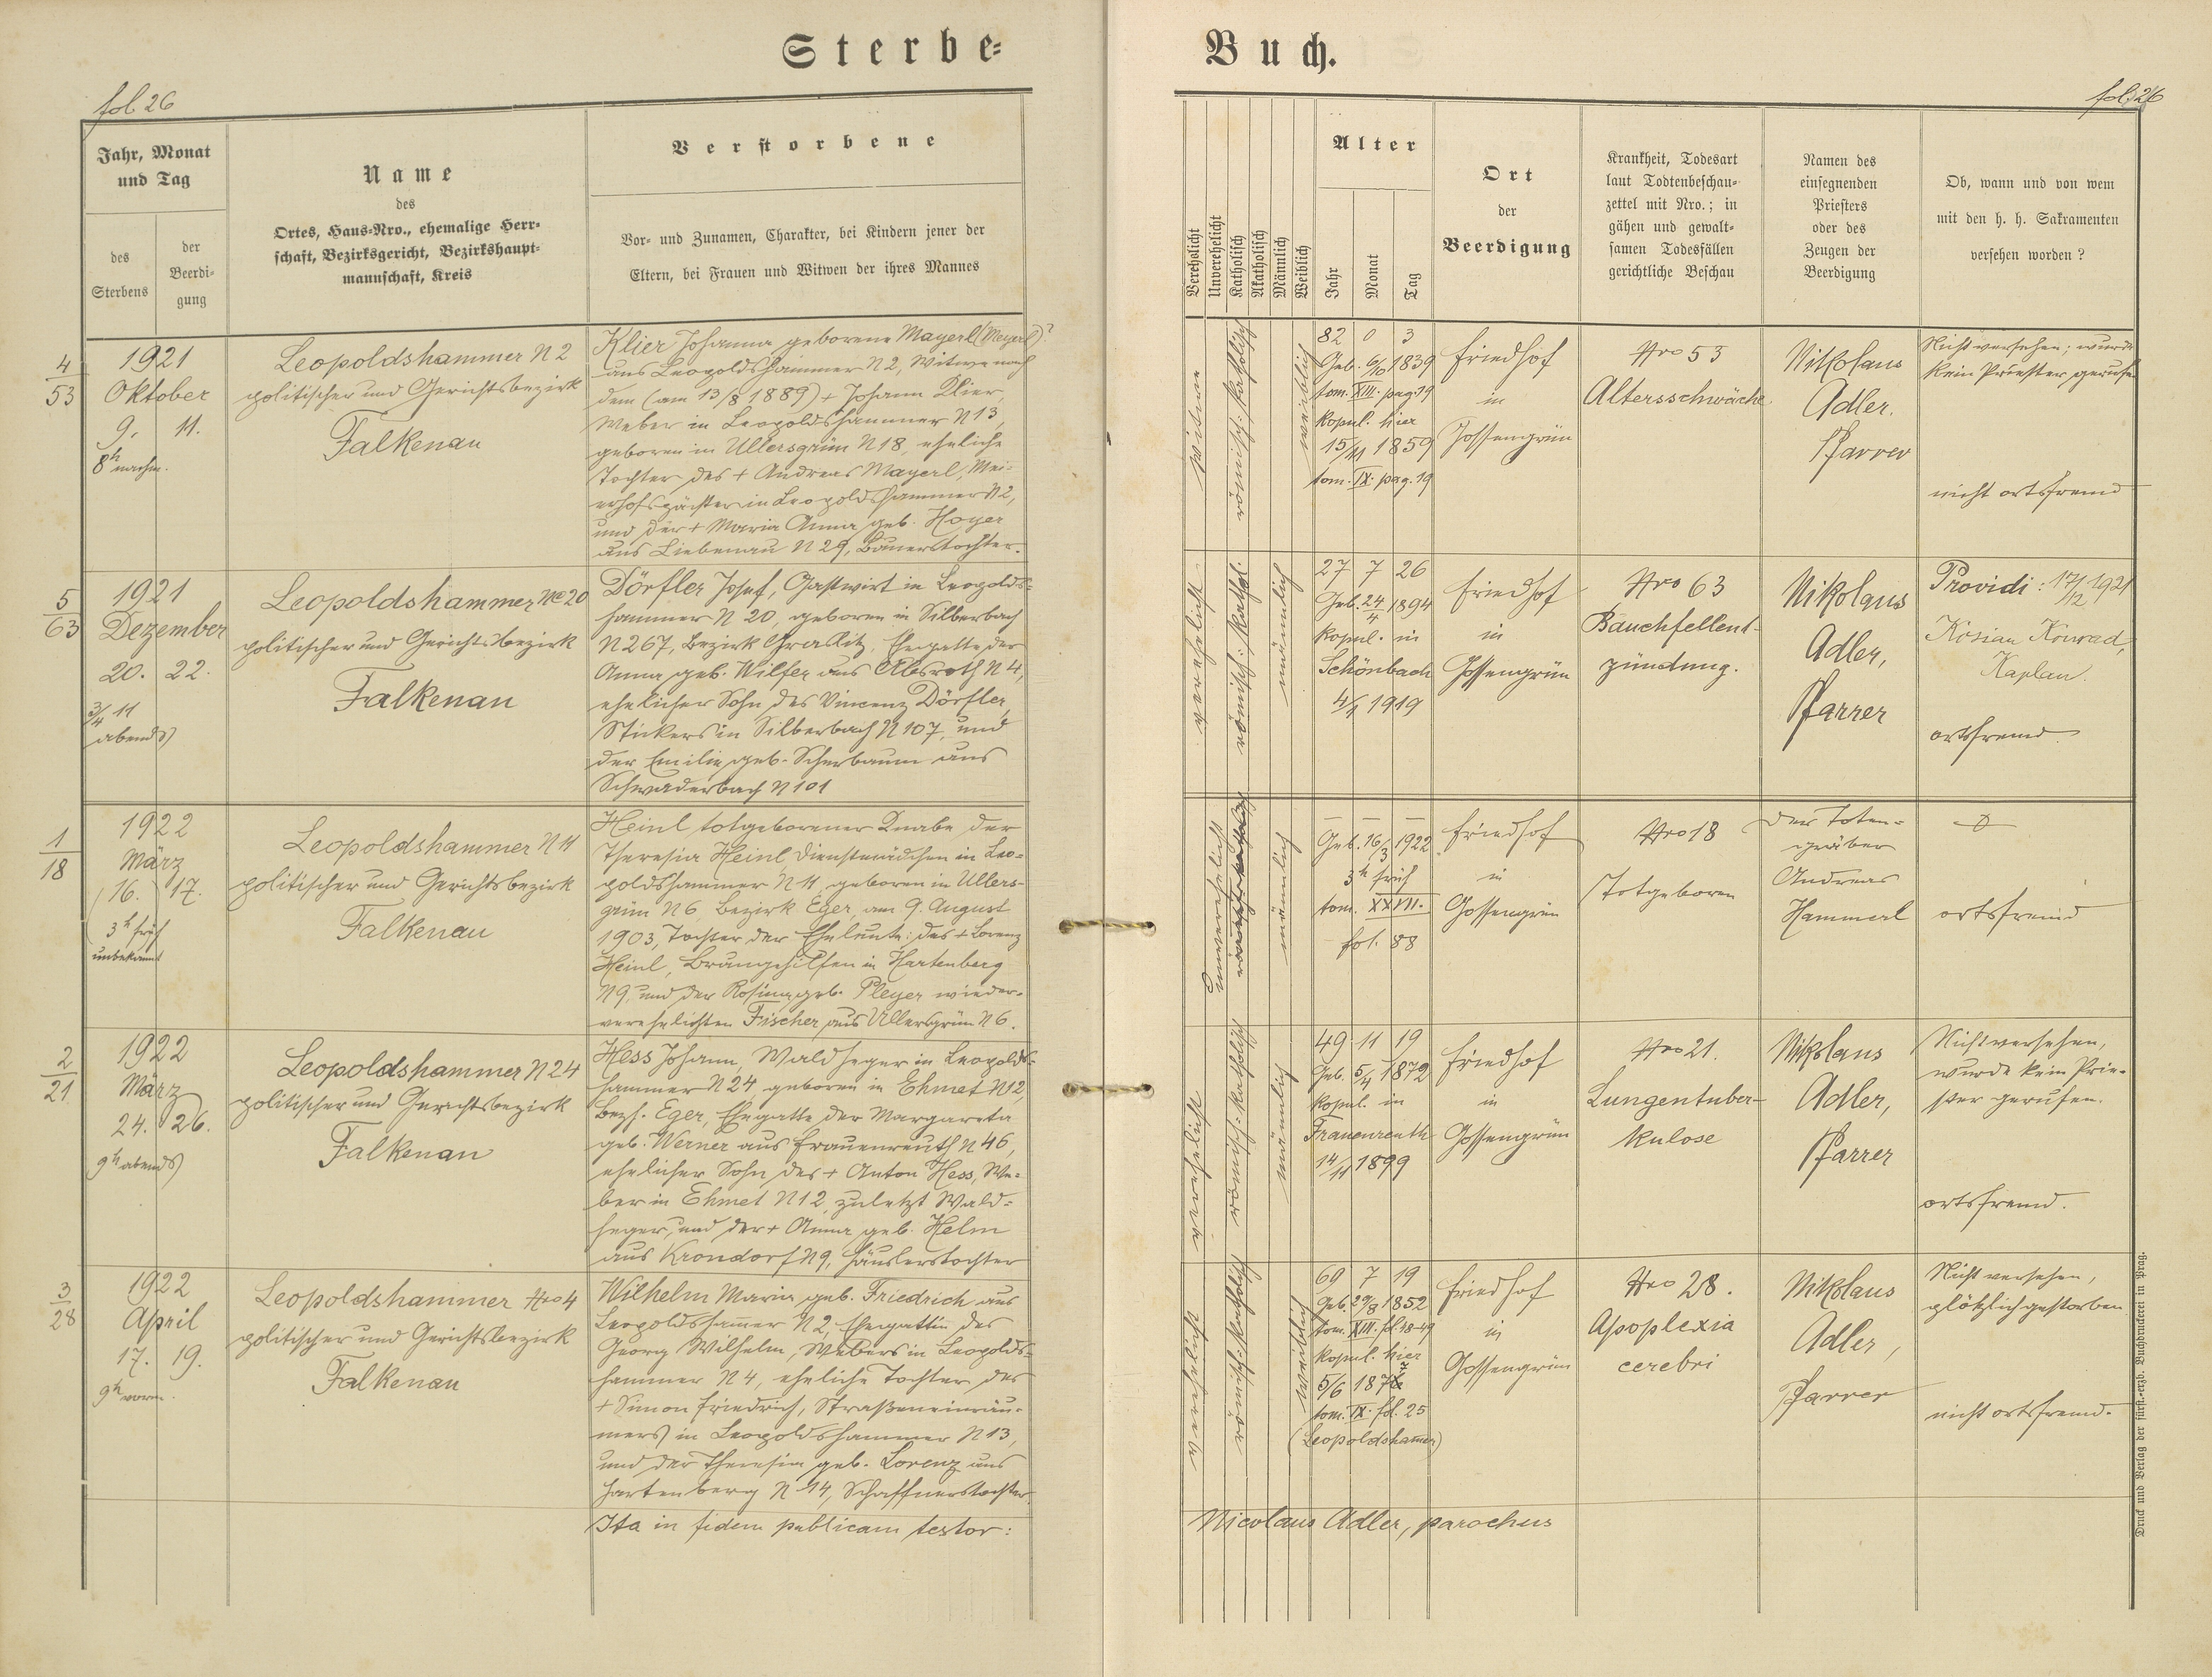 Sterbe-
Buch.
fol. 26
fol. 26
Jahr, Monat
und Tag
des
Sterbens
der
Beerdi-
gung
Name
des
Ortes, Haus-Nro., ehemalige Herr-
schaft, Bezirksgericht, Bezirkshaupt-
mannschaft, Kreis
Verstorbene
Vor- und Zunamen, Charakter, bei Kindern jener der
Eltern, bei Frauen und Witwen der ihres Mannes
Verehelicht
Unverehelicht
Katholisch
Akatholisch
Männlich
Weiblich
Alter
Jahr
Monat
Tag
Ort
der
Beerdigung
Krankheit, Todesart
laut Todtenbeschau-
zettel mit Nro.; in
gähen und gewalt-
samen Todesfällen
gerichtliche Beschau
Namen des
einsegnenden
Priesters
oder des
Zeugen der
Beerdigung
Ob, wann und von wem
mit den h. h. Sakramenten
versehen worden?
4
53
1921
Oktober
9. 11.
8h nachm.
Leopoldshammer N 2
politischer und Gerichtsbezirk
Falkenau
Klier Johanna geborene Mayerl (Meyerl)?
aus Leopoldshammer N 2, Witwe nach
dem (am 13/8 1889) + Johann Klier,
Weber in Leopoldshammer N 13,
geboren in Ullersgrün N 18, eheliche
Tochter des + Andreas Mayerl, Mei-
erhofspächter in Leopoldshammer N 2,
und der + Maria Anna geb. Hoyer
aus Liebenau N 29, Bauerstochter.
Witwe
römisch-katholisch
weiblich
82 0 3
Geb. 6/10 1839
tom. XIII. pag. 19
kopul. hier
15/11 1859
tom. IX. pag. 19
Friedhof
in
Gossengrün
Nro 53
Altersschwäche.
Nikolaus
Adler.
Pfarrer
Nicht versehen; wurde
kein Priester gerufen
nicht ortsfremd
5
63
1921
Dezember
20. 22.
3/4 11
abends
Leopoldshammer No 20
politischer und Gerichtsbezirk
Falkenau
Dörfler Josef, Gastwirt in Leopolds-
hammer N 20, geboren in Silberbach
N 267, Bezirk Graslitz, Ehegatte der
Anna geb. Wilfer aus Absroth N 4,
ehelicher Sohn des Vincenz Dörfler,
Stickers in Silberbach N 107, und
der Emilie geb. Scherbaum aus
Schwaderbach N 101
verehelicht
römisch-kathol.
männlich
27 7 26
Geb. 24/4 1894
kopul. in
Schönbach
4/1 1919
Friedhof
in
Gossengrün
Nro 63
Bauchfellent-
zündung.
Nikolaus
Adler,
Pfarrer
Providi: 17/12 1921
Kosian Konrad,
Kaplan.
ortsfremd.
1
18
1922
März
16. 17.
3h früh
unbekannt
Leopoldshammer N 11
politischer und Gerichtsbezirk
Falkenau
Heinl totgeborener Knabe der
Theresia Heinl, Dienstmädchen in Leo-
poldshammer N 11, geboren in Ullers-
grün N 6, Bezirk Eger, am 9. August
1903, Tochter der Eheleute: des + Lorenz
Heinl, Braugehilfen in Hartenberg
N 9, und der Rosina geb. Pleyer wieder-
verehelichten Fischer aus Ullersgrün N 6.
Unverehelicht
männlich
– – –
Geb. 16/3 1922
3h früh
tom. XXVII.
fol. 88
Friedhof
in
Gossengrün
Nro 18
Totgeboren
Der Toten-
gräber
Andreas
Hammerl
ortsfremd
2
21
1922
März
24. 26.
9h abends
Leopoldshammer N 24
politischer und Gerichtsbezirk
Falkenau
Hess Johann, Waldheger in Leopolds-
hammer N 24, geboren in Ehmet N 12,
Bezh. Eger, Ehegatte der Margareta
geb. Werner aus Frauenreuth N 46,
ehelicher Sohn des + Anton Hess, We-
ber in Ehmet N 12, zuletzt Wald-
heger, und der + Anna geb. Helm
aus Krondorf N 9, Häuslerstochter
verehelicht
römisch-katholisch
männlich
49 11 19
Geb. 5/4 1872
kopul. in
Frauenreuth
14/11 1899
Friedhof
in
Gossengrün
Nro 21.
Lungentuber-
kulose
Nikolaus
Adler,
Pfarrer
Nicht versehen,
wurde kein Prie-
ster gerufen.
ortsfremd.
3
28
1922
April
17. 19.
9h vorm.
Leopoldshammer Nro 4
politischer und Gerichtsbezirk
Falkenau
Wilhelm Maria geb. Friedrich aus
Leopoldsham̅er N 2, Ehegattin des
Georg Wilhelm, Webers in Leopolds-
hammer N 4, eheliche Tochter des
+ Simon Friedrich, Straßeneinräu-
mers in Leopoldshammer N 13,
und der Theresia geb. Lorenz aus
Hartenberg N 14, Schaffnerstochter.
verehelicht
römisch-katholisch
weiblich
69 7 19
Geb. 29/8 1852
tom. XIII. fol. 48-49
kopul. hier
5/6 1877
tom. IX. fol. 25
(Leopoldsham̅er)
Friedhof
in
Gossengrün
Nro 28.
Apoplexia
cerebri
Nikolaus
Adler,
Pfarrer
Nicht versehen,
plötzlich gestorben
nicht ortsfremd.
Ita in fidem publicam testor:
Nicolaus Adler, parochus
Druck und Verlag der fürst.-erzb. Buchdruckerei in Prag.